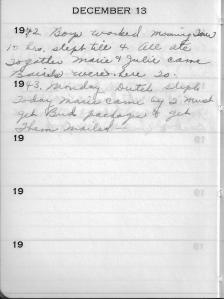 DECEMBER 13
1942 Boys worked
10 hrs. slept till 4 All ate
Together Marie & Julie came
Bairds were here To.
1943. Monday Dutch slept
Today Marie came by I must
get Bud package & get
Them mailed
19
19
19